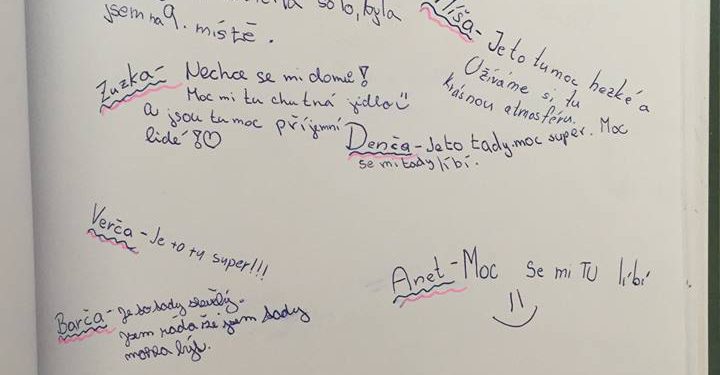 solo, byla
jsem na 9. místě.
Míša - Je to tu moc hezké a
Užíváme si tu
krásnou atmosféru.
Zuzka - Nechce se mi domů!
Moc mi tu chutná jídlo
a jsou tu moc příjemní
lidé!
Denča - Je to tady moc super. Moc
se mi tady líbí.
Verča - Je to tu super!!!
Anet - Moc se mi TU líbí
Barča - Je to tady skvělý.
jsem ráda že jsem tady
mohla být.